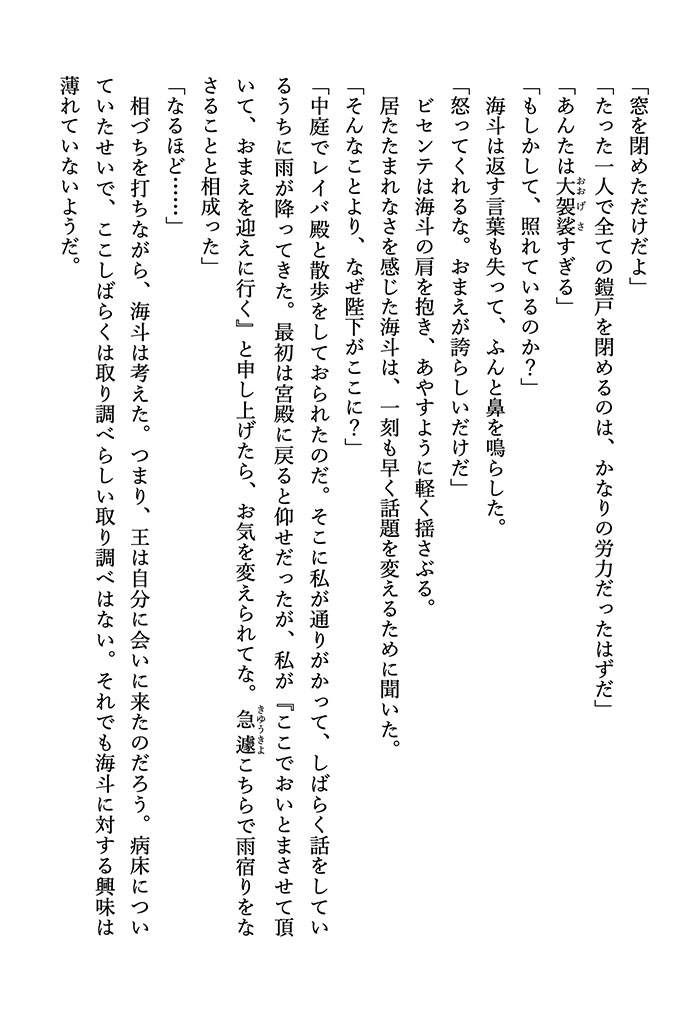 「窓を閉めただけだよ」
「たった一人で全ての鎧戸を閉めるのは、かなりの労力だったはずだ」
「あんたは大袈裟すぎる」
「もしかして、照れているのか？」
海斗は返す言葉も失って、ふんと鼻を鳴らした。
「怒ってくれるな。おまえが誇らしいだけだ」
ビセンテは海斗の肩を抱き、あやすように軽く揺さぶる。
居たたまれなさを感じた海斗は、一刻も早く話題を変えるために聞いた。
「そんなことより、なぜ陛下がここに？」
「中庭でレイバ殿と散歩をしておられたのだ。そこに私が通りがかって、しばらく話をしてい
るうちに雨が降ってきた。最初は宮殿に戻ると仰せだったが、私が『ここでおいとまさせて頂
いて、おまえを迎えに行く』と申し上げたら、お気を変えられてな。急遽こちらで雨宿りをな
さることと相成った」
「なるほど……」
相づちを打ちながら、海斗は考えた。つまり、王は自分に会いに来たのだろう。病床につい
ていたせいで、ここしばらくは取り調べらしい取り調べはない。それでも海斗に対する興味は
薄れていないようだ。